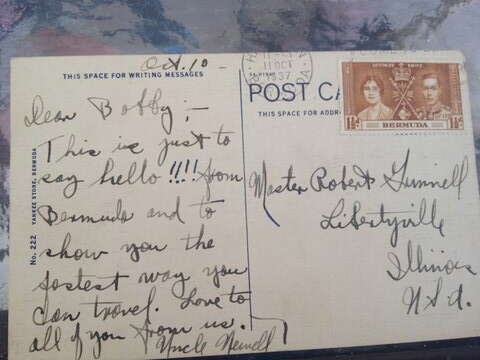 Oct. 10 -
THIS SPACE FOR WRITING MESSAGES
Dear Bobby ; -
This is just to
say hello !!!! from
Bermuda and to
show you the
fastest way you
can travel. Love to
all of you from us.
Uncle Newell
No. 222 YANKEE STORE, BERMUDA
11 OCT
1937
POST CA
THIS SPACE FOR ADDR
BERMUDA
1½d
1½d
Master Robert
Libertyville
Illinois
U.S.A.